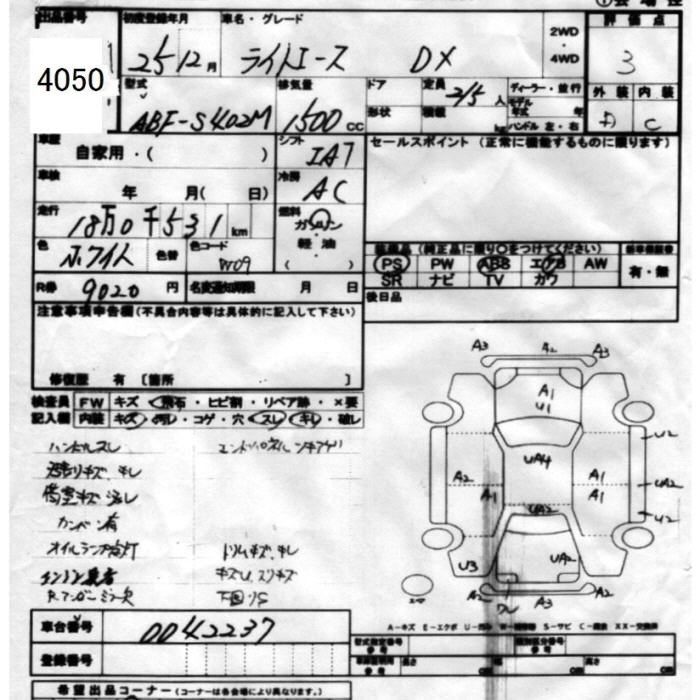 出品番号 初度登録年月 車名・グレード 評価点
4050 25/12月 ライトエース DX 2WD・4WD 3
型式 排気量 ドア 定員 ディーラー・並行 外装 内装
ABF-S402M 1500cc 形状 積載 2/5人 kg モデル年式 年 ハンドル 左・右 D C
車歴 シフト セールスポイント (正常に機能するものに限ります)
自家用・( ) IA7
車検 冷房
年 月( 日) AC
走行 燃料
18万0千531km ガソリン・軽油 ( )
色 色替 色コード 装備品 (純正品に限り○をつけてください) 新車保証書
ホワイト W09 PS PW ABS エアB AW 有・無
SR ナビ TV カワ
R券 9020円 名変通知期限 月 日 後日品
注意事項申告欄 (不具合内容等は具体的に記入して下さい)
修復歴 有 [箇所 ]
検査員 FW キズ・飛石・ヒビ割・リペア跡・×要
記入欄 内装 キズ・汚レ・コゲ・穴・スレ・キレ・破レ
ハンドルスレ
キズ、キレ
荷室キズ
カンバン有
オイルランプ点灯 トリムキズ、キレ
下回りS
A3 A2 A3
A1
U1
U2
UA4
A2 A1 A1 UA2
A1
UA2 U2
U3 UA2
A2 A3 A2
A-キズ E-エクボ U-凹ミ W-補修跡 S-サビ C-腐食 XX-交換済
車台番号 0042237 型式指定番号 参考 類別区分番号 参考
登録番号 車庫証明用 参考 長さ cm 幅 cm 高さ cm
希望出品コーナー (コーナーは各会場により異なります。)